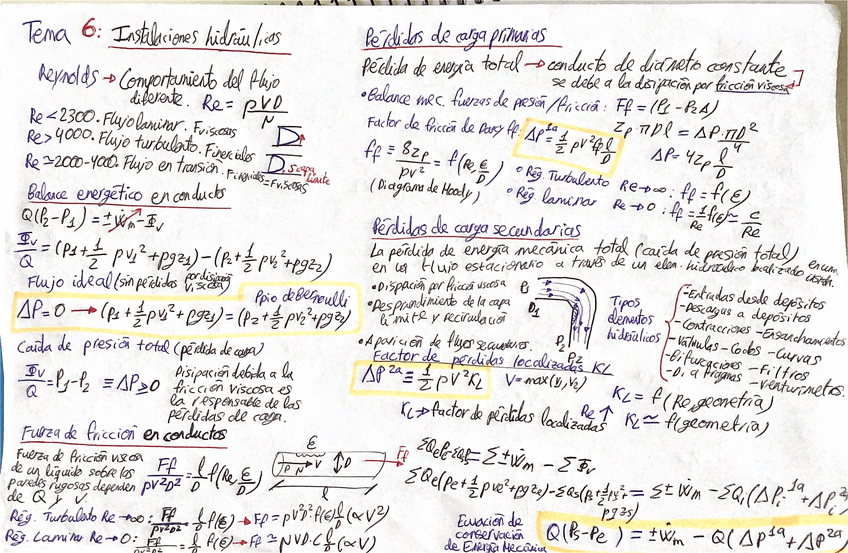 Tema 6: Instalaciones hidráulicas
Reynolds → Comportamiento del flujo
diferente. Re = ρVD/μ
Re < 2300. Flujo laminar. F viscosas
Re > 4000. Flujo turbulento. F inerciales
Re ≃ 2000-4000. Flujo en transición. F inerciales = F viscosas
D. → capa límite
Balance energético en conductos
Q(P2-P1) = ±Ẇm - Φv
Φv/Q = (P1 + 1/2 ρV1² + ρgz1) - (P2 + 1/2 ρV2² + ρgz2)
Flujo ideal (sin pérdidas por disipación viscosa)
Ppio de Bernoulli
ΔP = 0 → (P1 + 1/2 ρV1² + ρgz1) = (P2 + 1/2 ρV2² + ρgz2)
Caída de presión total (pérdida de carga)
Φv/Q = P1 - P2 ≡ ΔP ≥ 0
Disipación debida a la
fricción viscosa es
la responsable de las
pérdidas de carga.
Fuerza de fricción en conductos
Fuerza de fricción viscosa
de un líquido sobre las
paredes rugosas dependen
de Q y V.
Ff/ρV²D² = l/D f(Re, ε/D)
ε
ρ μ → V D
l
Ff
Rég. Turbulento Re → ∞: Ff/ρV²D² = l/D f(ε) → Ff = ρV²D² f(ε) l/D (αV²)
Rég. Laminar Re → 0: Ff/ρV²D² = l/D f(ε) → Ff ≃ μVD.C l/D (αV)
Pérdidas de carga primarias
Pérdida de energía total → conducto de diámetro constante
se debe a la disipación por fricción viscosa
• Balance mec. fuerzas de presión/fricción: Ff = (P1 - P2 A)
Zp πDl = ΔP πD²/4
ΔP = 4Zp l/D
Factor de fricción de Darcy ff: ΔP¹ᵃ = 1/2 ρV² ff l/D
ff = 8Zp/ρV² = f(Re, ε/D)
(Diagrama de Moody)
• Rég. Turbulento Re → ∞: ff = f(ε)
• Rég. laminar Re → 0: ff = 1/Re f(ε) ≃ C/Re
Pérdidas de carga secundarias
La pérdida de energía mecánica total (caída de presión total)
en un flujo estacionario a través de un elem. hidráulico localizado en una
• Disipación por fricción viscosa
• Desprendimiento de la capa
límite y recirculación
• Aparición de flujos secundarios.
P1
D1
D2
P2
Tipos
elementos
hidráulicos
- Entradas desde depósitos
- Descargas a depósitos
- Contracciones - Ensanchamientos
- Válvulas - Codos - Curvas
- Bifurcaciones - Filtros
- Diafragmas - Venturímetros.
Factor de pérdidas localizadas KL
ΔP²ᵃ ≡ 1/2 ρV² KL V = max(V1, V2)
KL → factor de pérdidas localizadas
KL = f(Re, geometría)
Re ↑ KL ≃ f(geometría)
= Σ ± Ẇm - Σ Φv
ΣQe(Pe + 1/2 ρVe² + ρgze) - ΣQs(Ps + 1/2 ρVs² + ρgzs) = Σ ± Ẇm - ΣQi(ΔPi¹ᵃ + ΔPi²ᵃ)
Ecuación de
conservación
de Energía Mecánica
Q(Ps - Pe) = ±Ẇm - Q(ΔP¹ᵃ + ΔP²ᵃ)